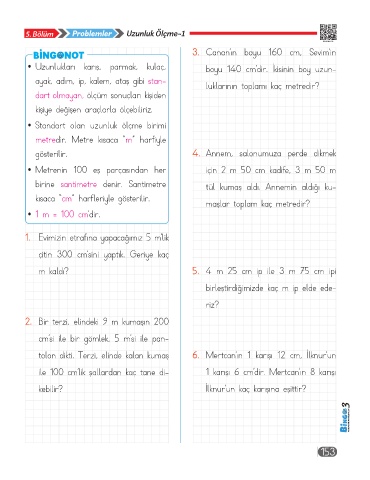 5. Bölüm Problemler Uzunluk Ölçme-1
BİNGO NOT
• Uzunlukları karış, parmak, kulaç,
ayak, adım, ip, kalem, ataş gibi stan-
dart olmayan, ölçüm sonuçları kişiden
kişiye değişen araçlarla ölçebiliriz.
• Standart olan uzunluk ölçme birimi
metredir. Metre kısaca "m" harfiyle
gösterilir.
• Metrenin 100 eş parçasından her
birine santimetre denir. Santimetre
kısaca "cm" harfleriyle gösterilir.
• 1 m = 100 cm'dir.
1. Evimizin etrafına yapacağımız 5 m'lik
çitin 300 cm'sini yaptık. Geriye kaç
m kaldı?
2. Bir terzi, elindeki 9 m kumaşın 200
cm'si ile bir gömlek, 5 m'si ile pan-
tolon dikti. Terzi, elinde kalan kumaş
ile 100 cm'lik şallardan kaç tane di-
kebilir?
3. Canan'ın boyu 160 cm, Sevim'in
boyu 140 cm'dir. İkisinin boy uzun-
luklarının toplamı kaç metredir?
4. Annem, salonumuza perde dikmek
için 2 m 50 cm kadife, 3 m 50 m
tül kumaş aldı. Annemin aldığı ku-
maşlar toplam kaç metredir?
5. 4 m 25 cm ip ile 3 m 75 cm ipi
birleştirdiğimizde kaç m ip elde ede-
riz?
6. Mertcan'ın 1 karışı 12 cm, İlknur'un
1 karışı 6 cm'dir. Mertcan'ın 8 karışı
İlknur'un kaç karışına eşittir?
BİNGO 3
153